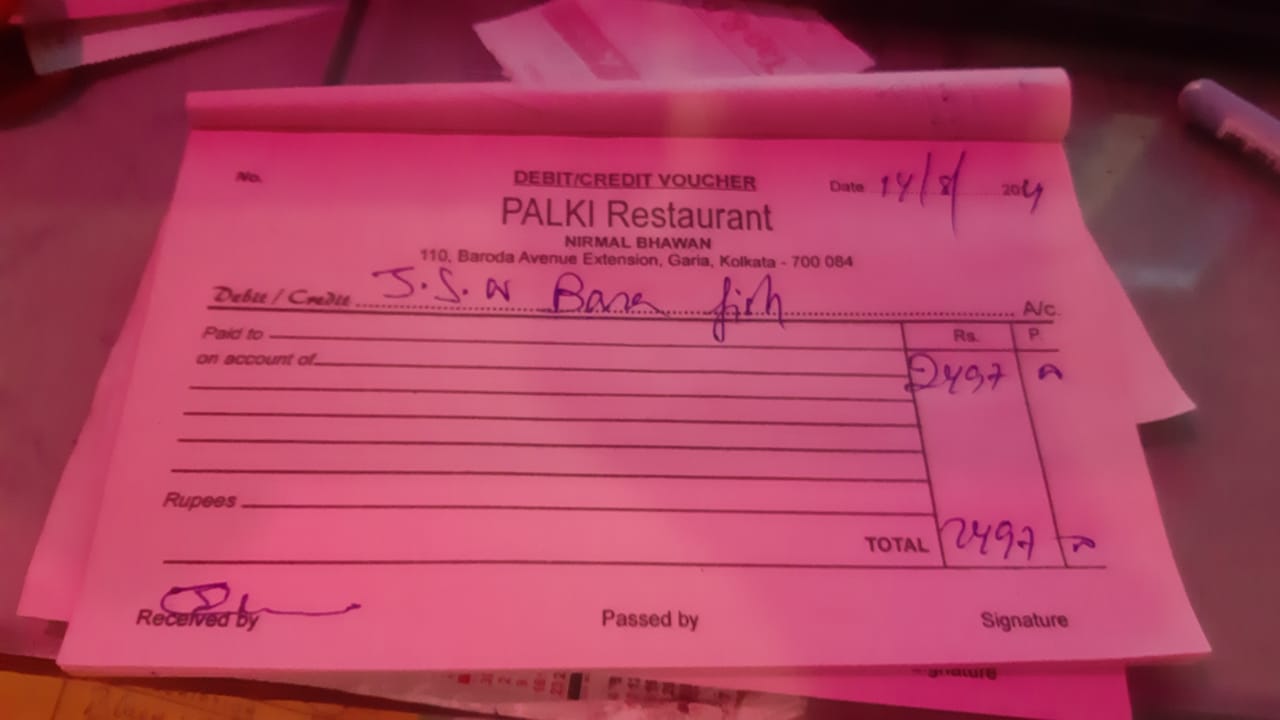 No.
DEBIT/CREDIT VOUCHER
Date 14/8/ 2024
PALKI Restaurant
NIRMAL BHAWAN
110, Baroda Avenue Extension, Garia, Kolkata - 700 084
Debit / Credit J.S. Basa fish A/c.
Paid to Rs. P.
on account of 2497
Rupees
TOTAL 2497
Received by Passed by Signature